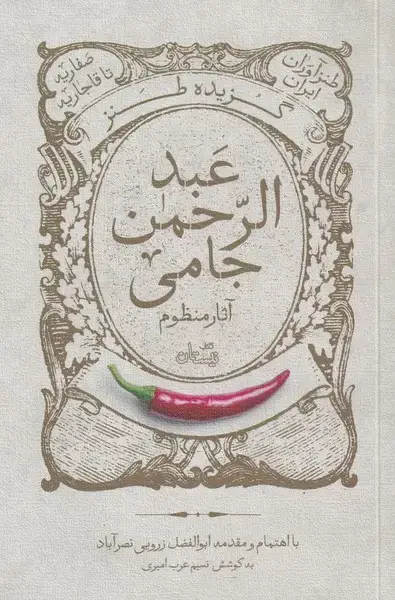 طنزآوران
ایران
صفاریه
تا قاجاریه
گزیده طنز
عَبد
الرّحمٰن
جامی
آثار منظوم
کتاب
نیستان
با اهتمام و مقدمه ابوالفضل زرویی نصرآباد
به کوشش نسیم عرب امیری